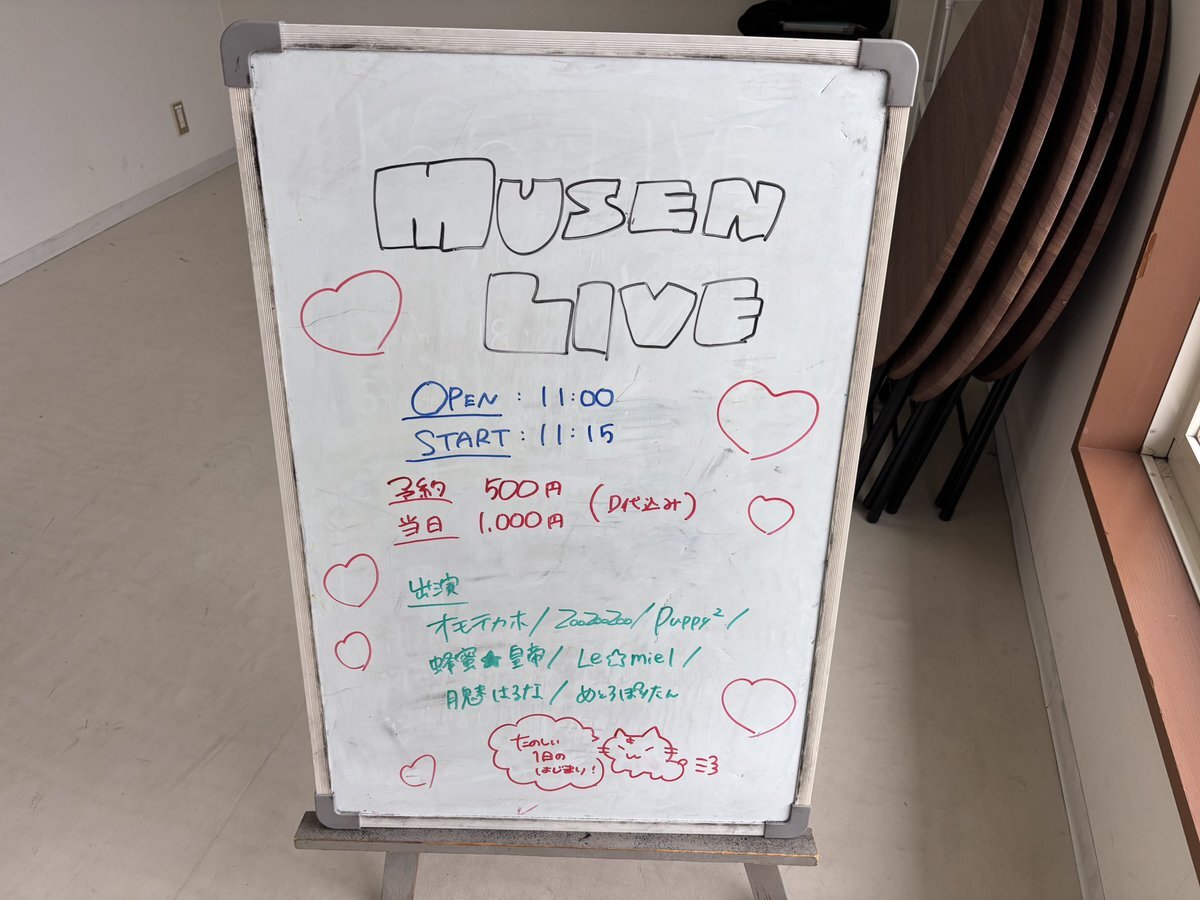 MUSEN
LIVE
OPEN : 11:00
START : 11:15
予約 500円
当日 1,000円
(D代込み)
出演
オモテカホ/ZooZooZoo/Puppy²/
蜂蜜★皇帝/Le☆miel/
月魅はるな/めとろぽりたん
たのしい
1日の
はじまり!